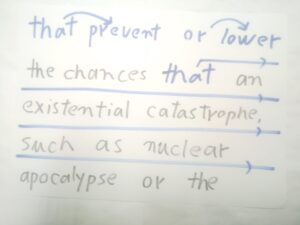 that prevent or lower
the chances that an
existential catastrophe,
such as nuclear
apocalypse or the